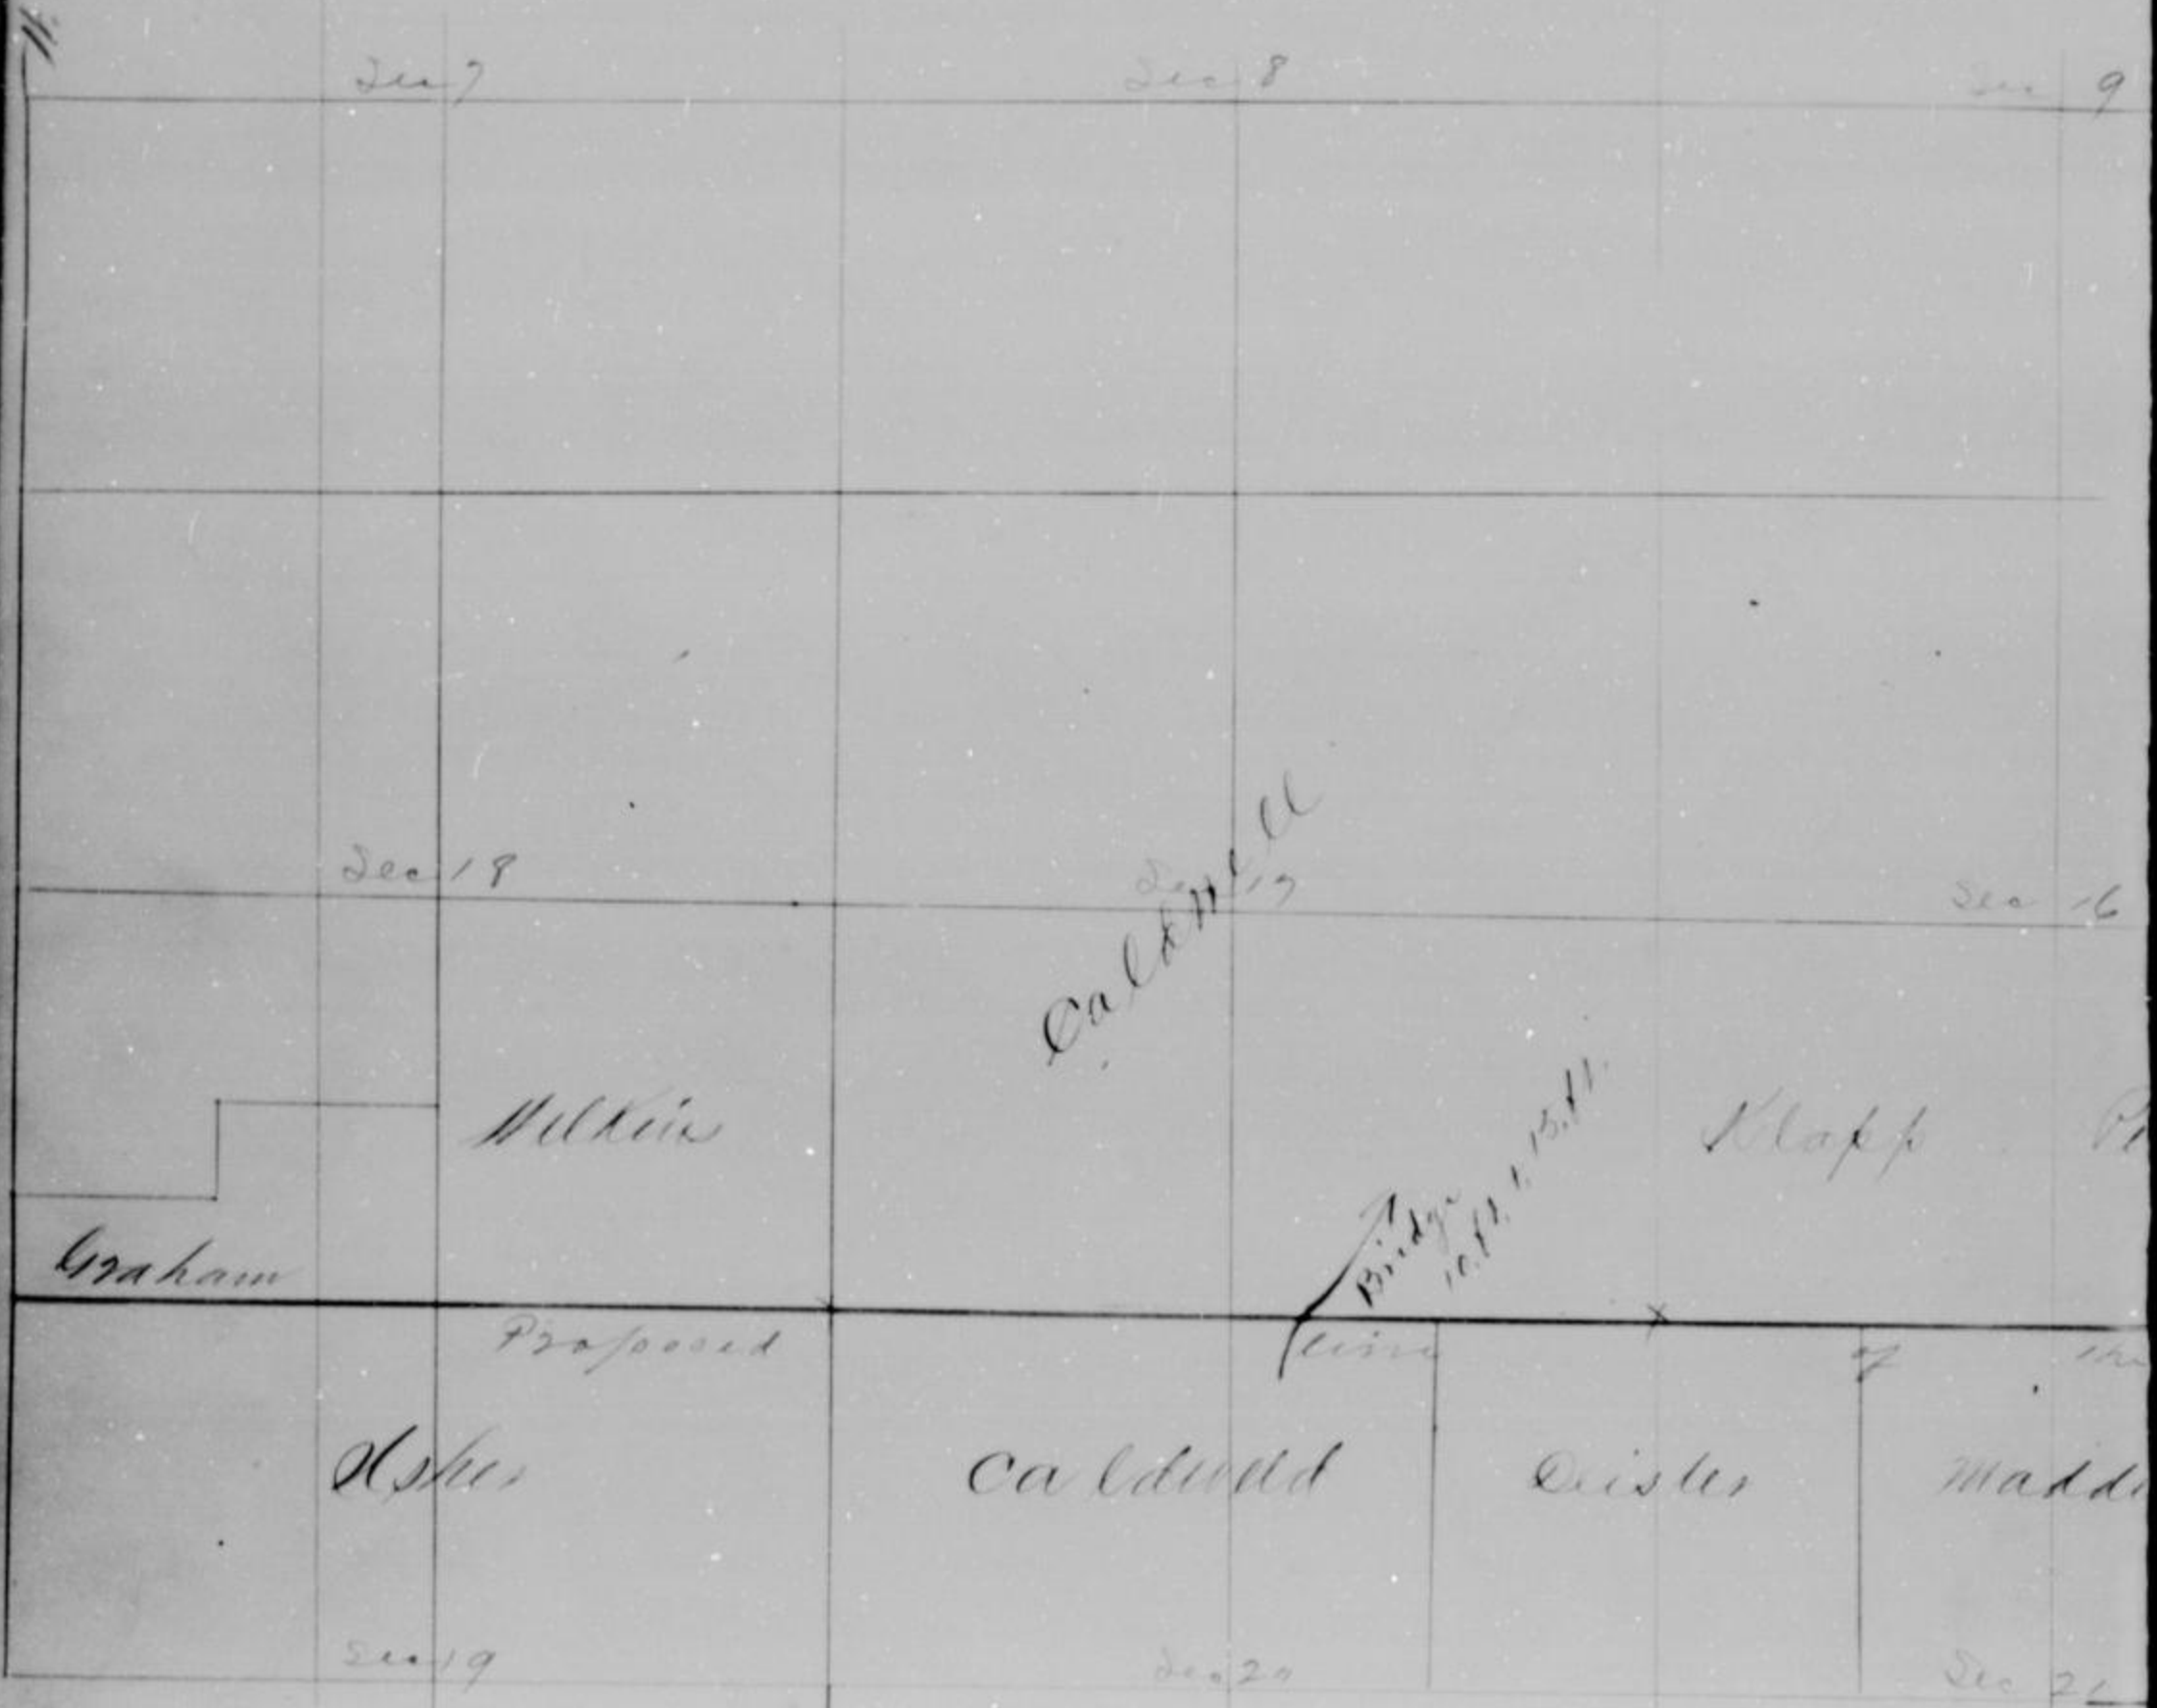 Sec 7
Sec 8
Sec 9
Sec 18
Sec 17
Sec 16
Caldwell
Wilkin
Klapp
Bridge
10 ft. 15. ft.
Graham
Proposed line of the
Asher
Caldwell
Deister
Madd
Sec 19
Sec 20
Sec 21